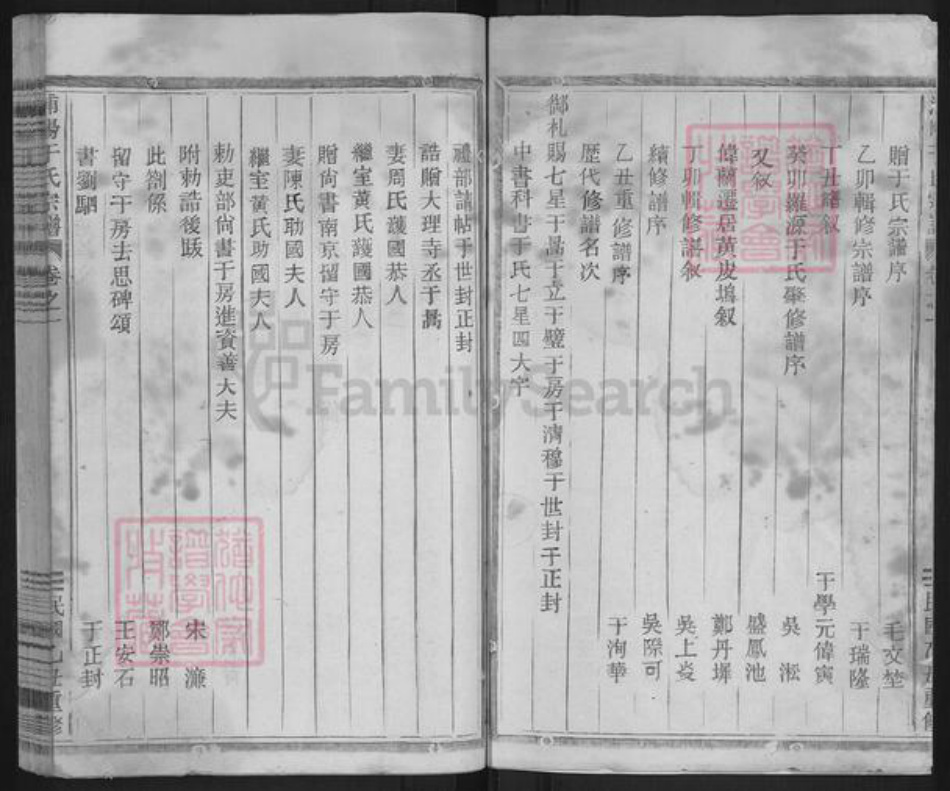 贈于氏宗譜序 毛文埜
乙卯輯修宗譜序 于瑞隆
丁丑緒叙 于學元偉寅
癸卯羅源于氏聚修譜序 吳淞
又叙 盛鳳池
偉蘭遷居黃皮塢叙 鄭丹墀
丁卯輯修譜叙 吳上焱
續修譜序 吳際可
乙丑重修譜序 于洵華
歴代修譜名次
御札賜七星于暠于立于璧于房于濟穆于世封于正封
中書科書于氏七星四大字
禮部請帖于世封正封
誥贈大理寺丞于暠
妻周氏護國恭人
繼室黃氏護國恭人
贈尚書南京留守于房
妻陳氏勛國夫人
繼室黃氏助國夫人
勅吏部尙書于房進資善大夫
附勅誥後跋 宋濂
此劄係 鄭崇昭
留守于房去思碑頌 王安石
書劉駟 于正封
于氏宗譜 卷之一 民國乙丑重修
FamilySearch